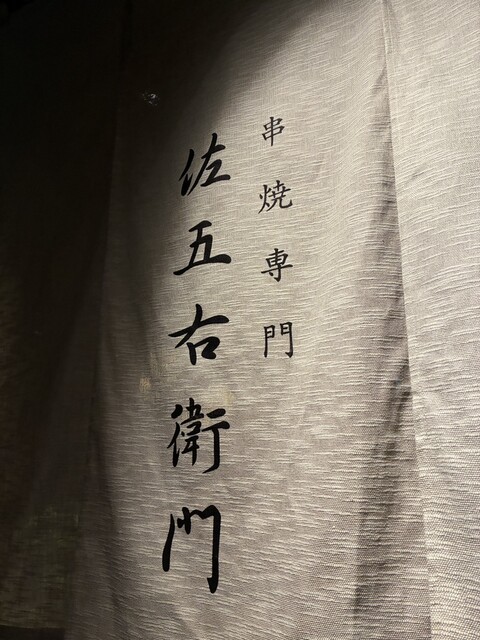 串焼専門
佐五右衛門